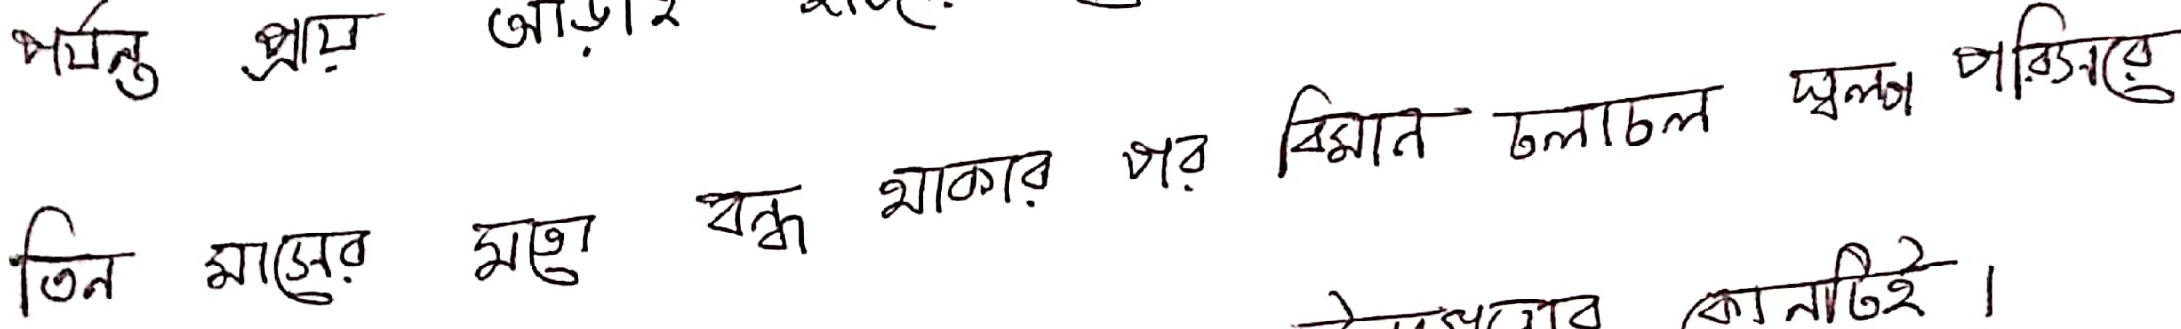 পর্যন্ত প্রায় আড়াই
তিন মাসের মতো বন্ধ থাকার পর বিমান চলাচল স্বল্প পরিসরে
কোনটিই ।